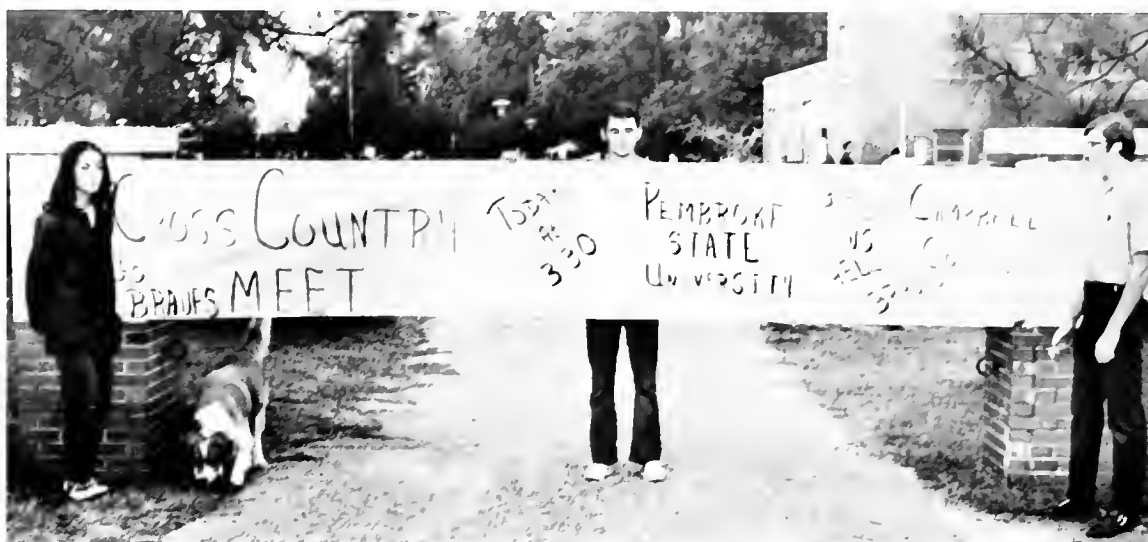 CROSS COUNTRY
GO
BRAVES MEET
TODAY
AT
3:30
PEMBROKE
STATE
UNIVERSITY
VS
CAMPBELL